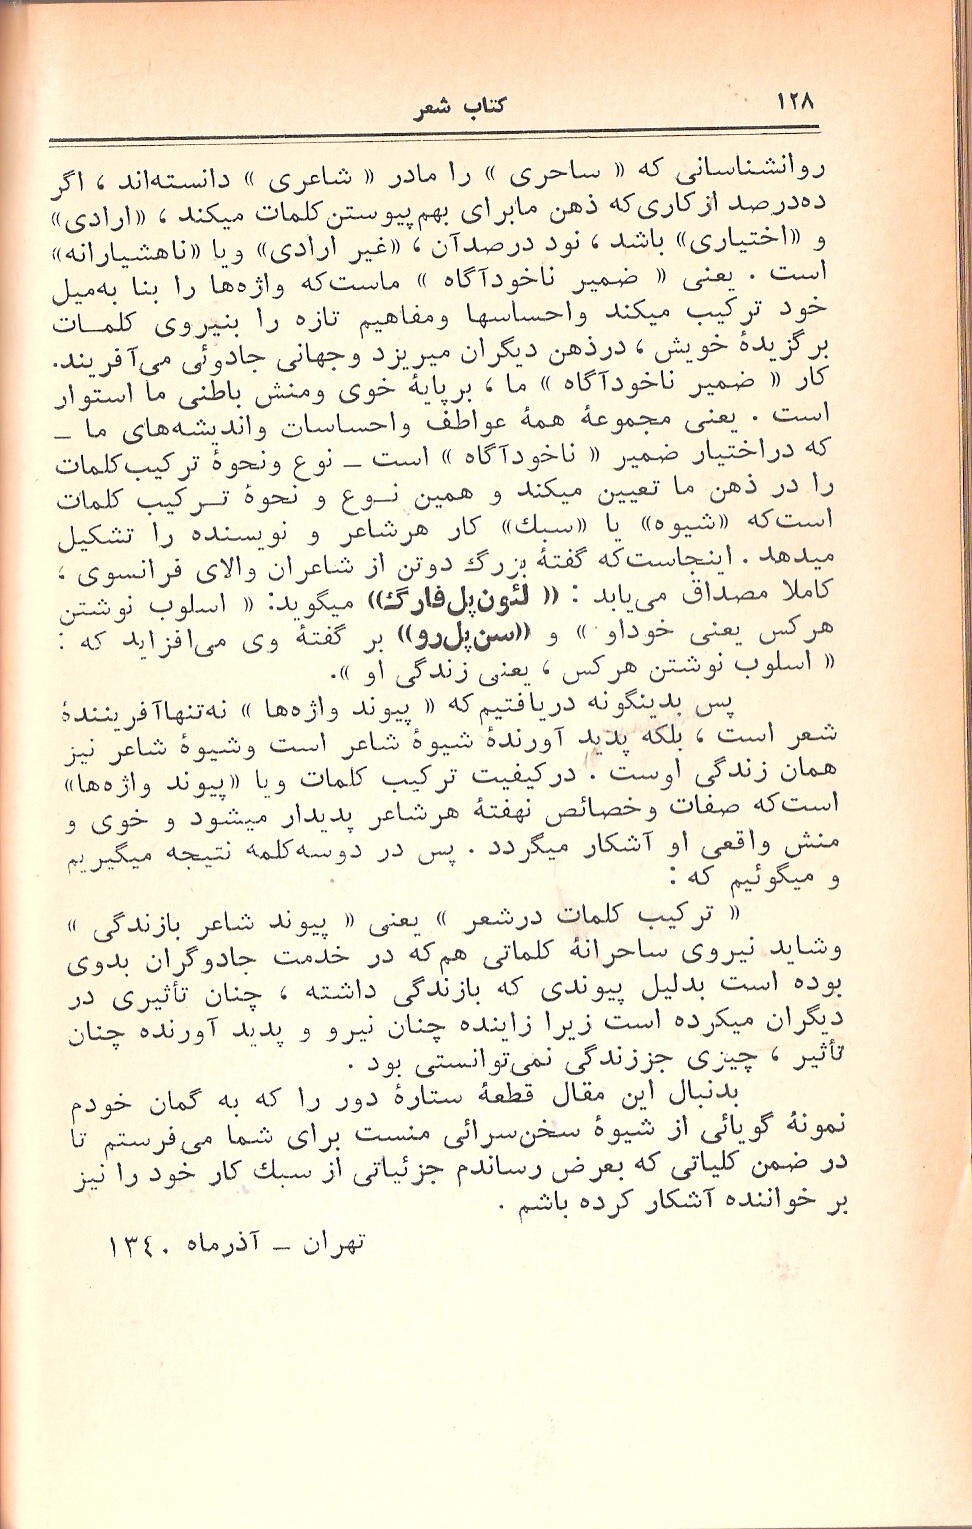 ۱۲۸ کتاب شعر
روانشناسانی که « ساحری » را مادر « شاعری » دانسته‌اند ، اگر
ده‌درصد از کاری‌که ذهن ما برای بهم‌پیوستن کلمات میکند ، «ارادی»
و «اختیاری» باشد ، نود درصد آن ، «غیر ارادی» و یا «ناهشیارانه»
است . یعنی « ضمیر ناخودآگاه » ماست‌که واژه‌ها را بنا به‌میل
خود ترکیب میکند و احساسها و مفاهیم تازه را بنیروی کلمـات
برگزیدهٔ خویش ، در ذهن دیگران میریزد و جهانی جادوئی می‌آفریند.
کار « ضمیر ناخودآگاه » ما ، بر پایهٔ خوی و منش باطنی ما استوار
است . یعنی مجموعهٔ همهٔ عواطف و احساسات و اندیشه‌های ما ـ
که در اختیار ضمیر « ناخودآگاه » است ـ نوع و نحوهٔ ترکیب کلمات
را در ذهن ما تعیین میکند و همین نـوع و نحوهٔ تـرکیب کلمات
است‌که «شیوه» یا «سبك» کار هر شاعر و نویسنده را تشکیل
میدهد . اینجاست‌که گفتهٔ بزرگ دو تن از شاعران والای فرانسوی ،
کاملا مصداق می‌یابد : « لئون‌پل‌فارگ» میگوید: « اسلوب نوشتن
هرکس یعنی خود او » و «سن‌پل‌رو» بر گفتهٔ وی می‌افزاید که :
« اسلوب نوشتن هرکس ، یعنی زندگی او ».
پس بدینگونه دریافتیم که « پیوند واژه‌ها » نه‌تنها آفرینندهٔ
شعر است ، بلکه پدید آورندهٔ شیوهٔ شاعر است و شیوهٔ شاعر نیز
همان زندگی اوست . در کیفیت ترکیب کلمات و یا «پیوند واژه‌ها»
است‌که صفات و خصائص نهفتهٔ هر شاعر پدیدار میشود و خوی و
منش واقعی او آشکار میگردد . پس در دو سه‌کلمه نتیجه میگیریم
و میگوئیم که :
« ترکیب کلمات در شعر » یعنی « پیوند شاعر با زندگی »
و شاید نیروی ساحرانهٔ کلماتی هم‌که در خدمت جادوگران بدوی
بوده است بدلیل پیوندی که با زندگی داشته ، چنان تأثیری در
دیگران میکرده است زیرا زاینده چنان نیرو و پدید آورنده چنان
تأثیر ، چیزی جز زندگی نمی‌توانستی بود .
بدنبال این مقال قطعهٔ ستارهٔ دور را که به گمان خودم
نمونهٔ گویائی از شیوهٔ سخن‌سرائی منست برای شما می‌فرستم تا
در ضمن کلیاتی که بعرض رساندم جزئیاتی از سبك کار خود را نیز
بر خواننده آشکار کرده باشم .
تهران ـ آذرماه ۱۳٤۰